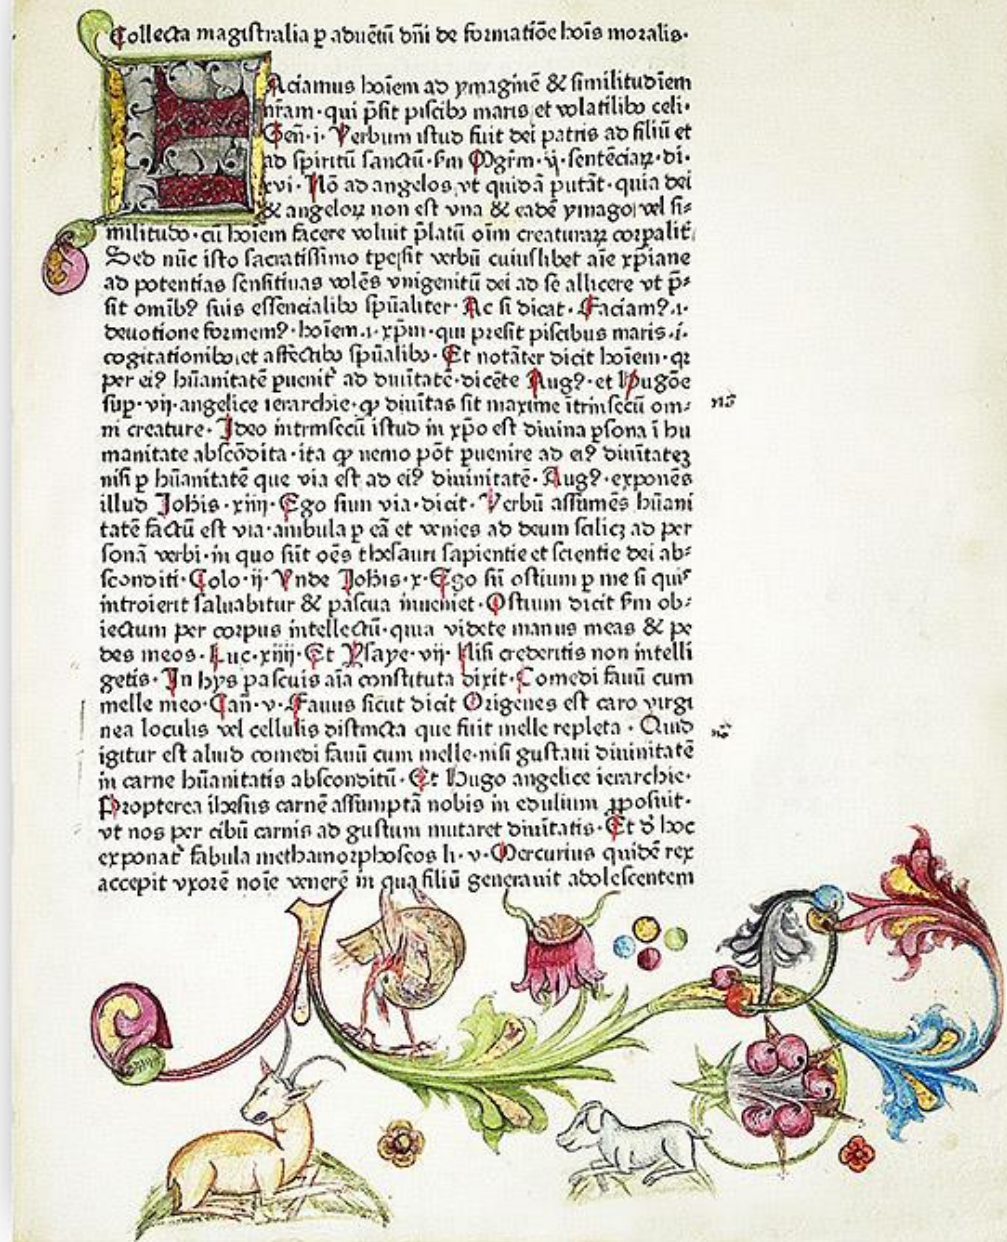 Collecta magistralia ꝑ aduētū dn̄i de formatiōe hoīs moralis·
FAciamus hoīem ad ymaginē & similitudīem
nr̄am·qui p̄sit piscibꝫ maris et volatilibꝫ celi·
Gen̄·i· Verbum istud fuit dei patris ad filiū et
ad spiritū sanctū·fm̄ Mgr̄m·ij·sentēciaꝝ·di·
xvi· Nō ad angelos vt quidā putāt·quia dei
& angeloꝝ non est vna & eadē ymago vel si⸗
militudo·cū hoīem facere voluit p̄latū oīm creaturaꝝ corꝑalit̄
Sed nūc isto sacratissimo tꝑe sit verbū cuiuslibet aīe xp̄iane
ad potentias sensitiuas volēs vnigenitū dei ad se allicere vt p̄⸗
sit omībꝰ suis essencialibꝫ spūaliter· Ac si dicat· Faciamꝰ·i·
deuotione formemꝰ·hoīem·i·xp̄m·qui presit piscibus maris·i·
cogitationibꝫ et affectibꝫ spūalibꝫ· Et notāter dicit hoīem·qꝛ
per eiꝰ hūanitatē ꝑuenit᷑ ad diuītatē·dicēte Augꝰ·et Hugōe
suꝑ·vij·angelice ierarchie·ꝙ diuītas sit maxime ītrinsecū om⸗ no̅
ni creature· Ideo intrinsecū istud in xp̄o est diuina ꝑsona ī hu
manitate abscōdita·ita ꝙ nemo pōt ꝑuenire ad eiꝰ diuītateꝫ
nisi ꝑ hūanitatē que via est ad eiꝰ diuinitatē· Augꝰ·exponēs
illud Joh̄is·xiiij· Ego sum via·dicit· Verbū assumēs hūani
tatē factū est via·ambula ꝑ eā et venies ad deum salicꝫ ad per
sonā verbi·in quo sūt oēs thesauri sapientie et scientie dei ab⸗
sconditi· Colo·ij· Vnde Joh̄is·x· Ego sū ostium ꝑ me si quis
introierit saluabitur & pascua inueniet· Ostium dicit fm̄ ob⸗
iectum per corpus intellectū·quia videte manus meas & pe
des meos· Luc·xiiij· Et Ysaye·vij· Nisi credentis non intelli
getis· In hys pascuis aīa constituta dixit· Comedi fauū cum
melle meo· Can̄·v· Fauus sicut dicit Origenes est caro virgi
nea loculis vel cellulis distincta que fuit melle repleta· Quid no̅
igitur est aliud comedi fauū cum melle·nisi gustaui diuinitatē
in carne hūanitatis absconditū· Et Hugo angelice ierarchie·
Propterea ihesus carnē assumptā nobis in edulium ꝓposuit·
vt nos per cibū carnis ad gustum mutaret diuītatis· Et ꝺ̄ hoc
exponat᷑ fabula methamorphoseos li·v· Mercurius quidē rex
accepit vxorē noīe venerē in qua filiū generauit adolescentem